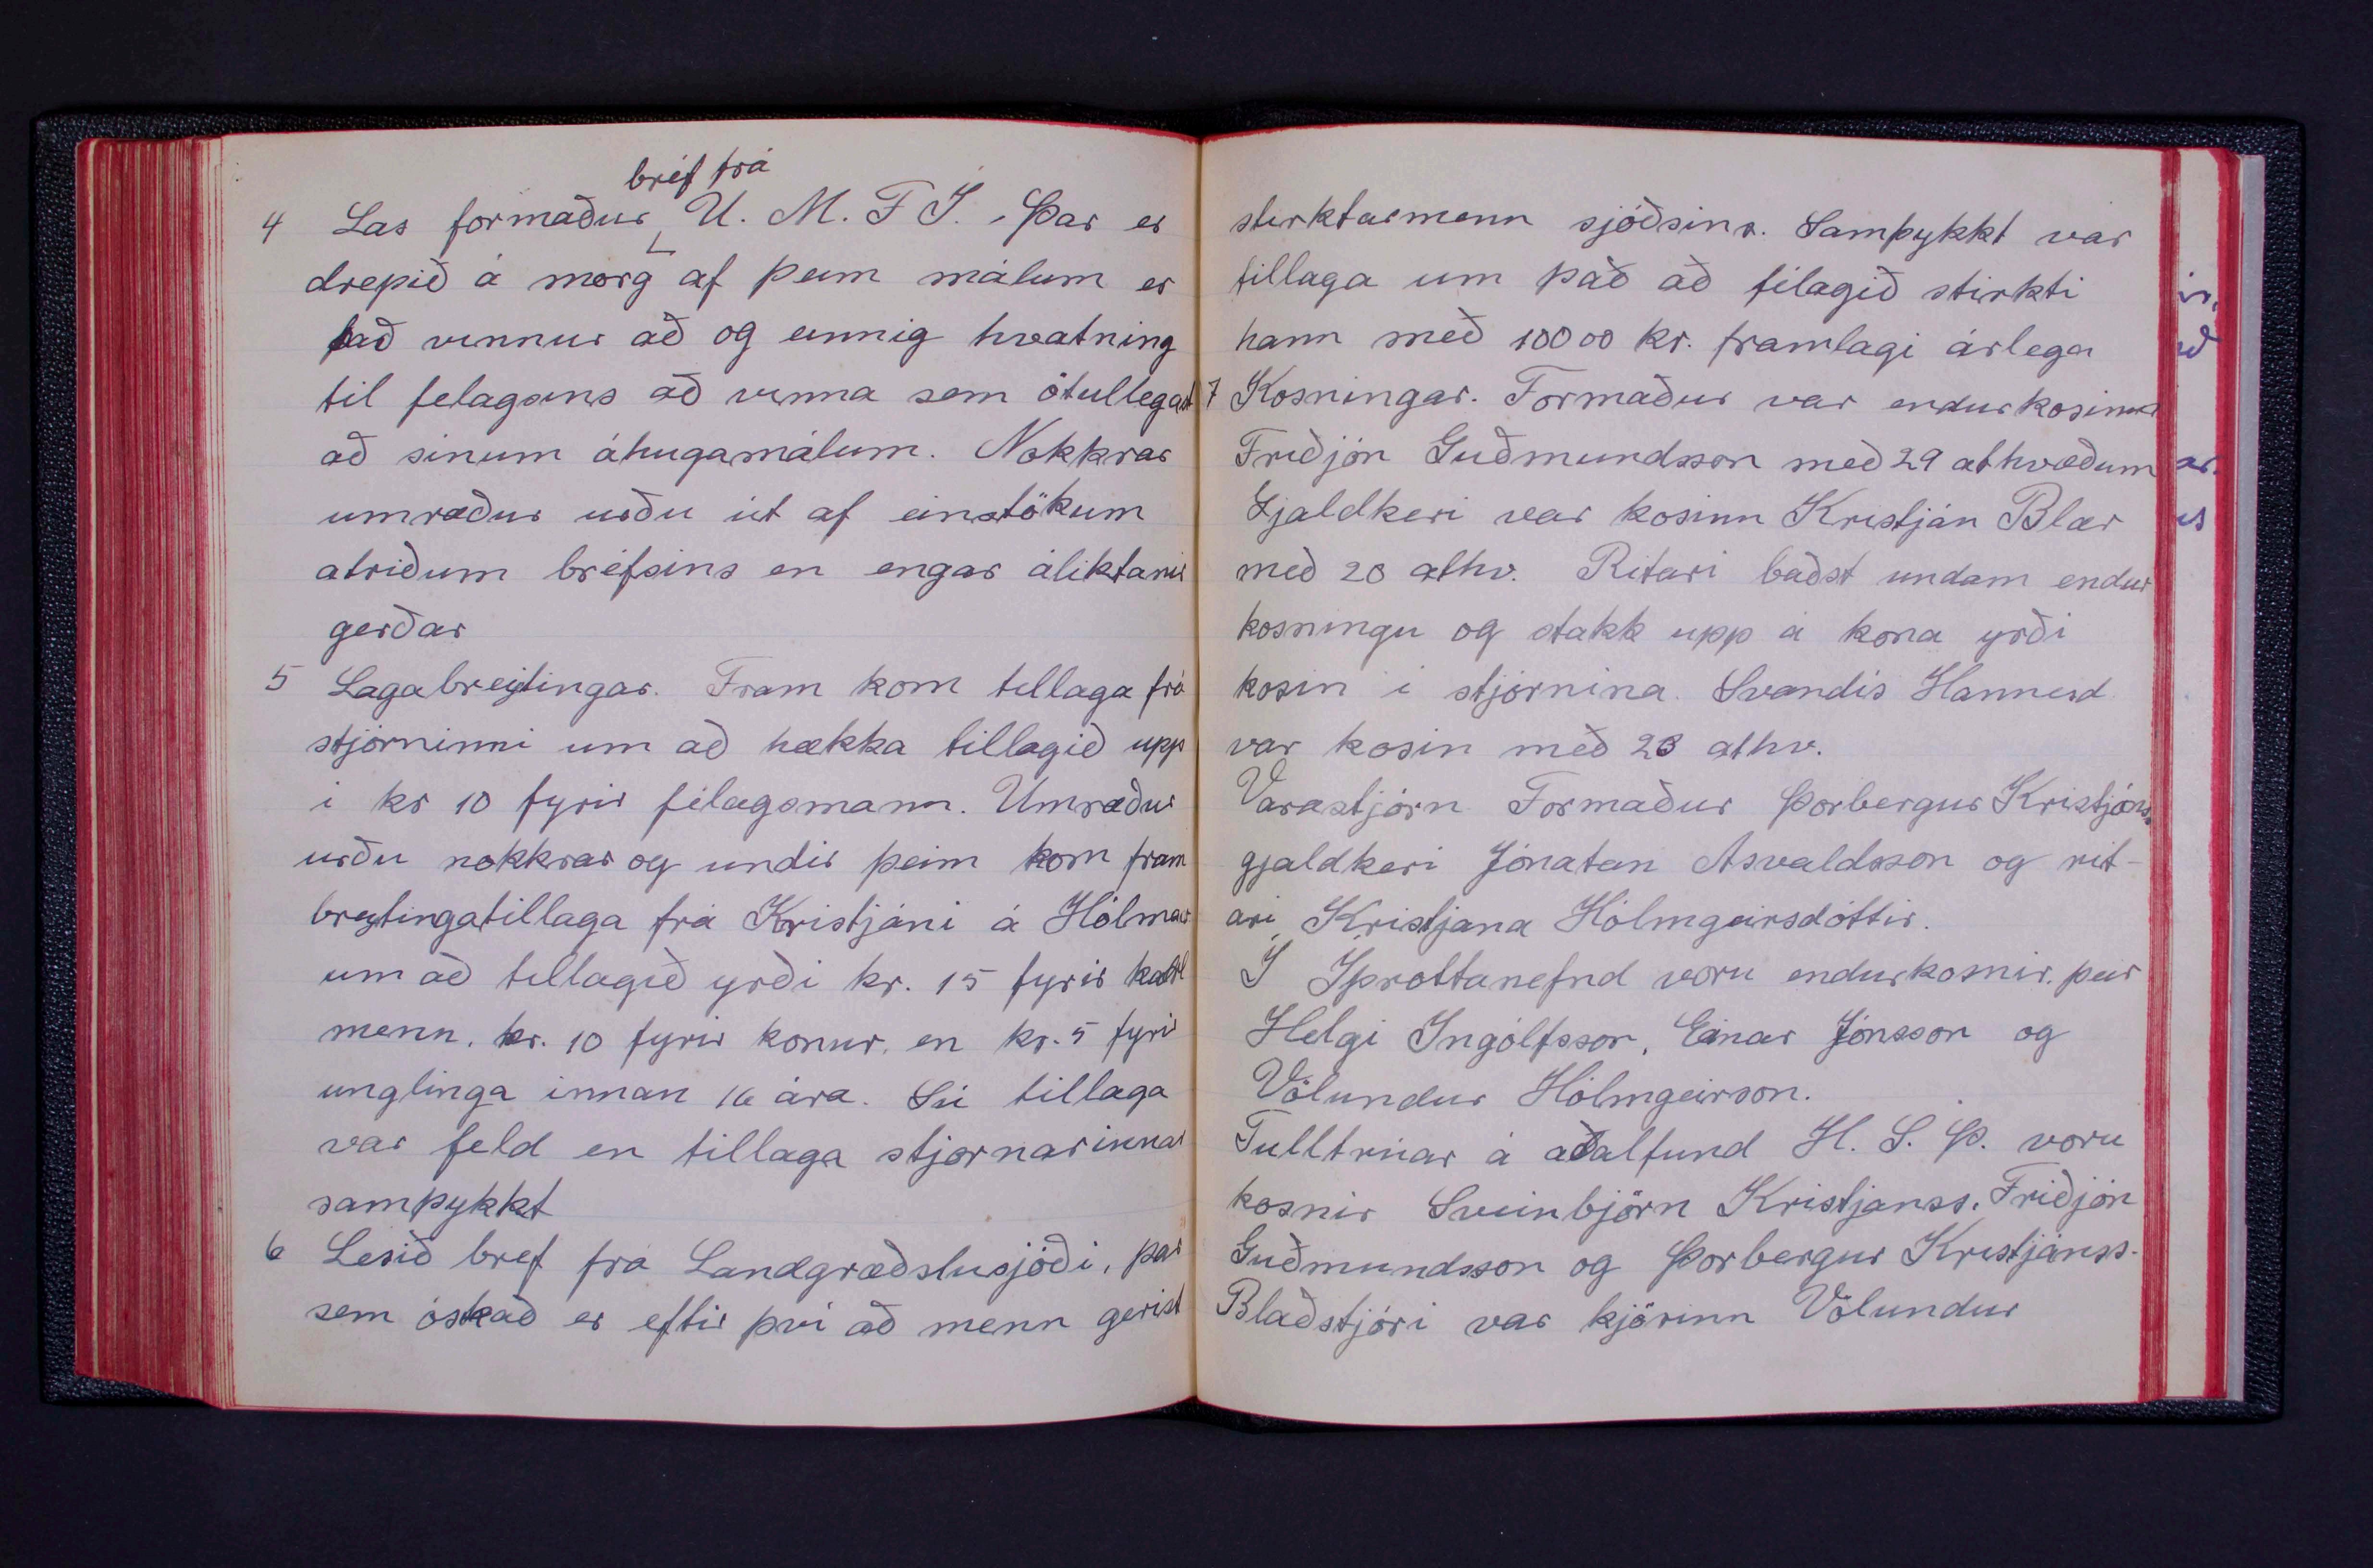 4 Las formaður bréf frá U. M. F Í. Þar er
drepið á mörg af þeim málum er
það vinnur að og einnig hvatning
til felagsins að vinna sem ötullegast
að sínum áhugamálum. Nokkrar
umræður urðu út af einstökum
atriðum bréfsins en engar áliktanir
gerðar
5 Lagabreytingar. Fram kom tillaga frá
stjórninni um að hækka tillagið upp
í kr 10 fyrir félagsmann. Umræður
urðu nokkrar og undir þeim kom fram
breytingatillaga frá Kristjáni á Hólmav
um að tillagið yrði kr. 15 fyrir karl
menn, kr. 10 fyrir konur, en kr. 5 fyrir
unglinga innan 16 ára. Sú tillaga
var feld en tillaga stjórnarinnar
samþykkt
6 Lesið bref frá Landgræðslusjóði, þar
sem óskað er eftir því að menn gerist
stirktarmenn sjóðsins. Samþykkt var
tillaga um það að félagið stirkti
hann með 100 00 kr. framlagi árlega
7 Kosningar. Formaður var endurkosinn
Friðjón Guðmundsson með 29 athvæðum
Gjaldkeri var kosinn Kristján Blær
með 20 athv. Ritari baðst undam endur
kosningu og stakk upp á kona yrði
kosin í stjórnina. Svandís Hannesd
var kosin með 23 athv.
Varastjórn Formaður Þorbergur Kristjánss.
gjaldkeri Jónatan Asvaldsson og rit-
ari Kristjana Hólmgeirsdóttir.
Í Íþrottanefnd voru endurkosnir, þeir
Helgi Ingólfsson, Einar Jónsson og
Völundur Hólmgeirson.
Fulltrúar á aðalfund H. S. Þ. voru
kosnir Sveinbjörn Kristjanss. Friðjón
Guðmundsson og Þorbergur Kristjánss.
Blaðstjóri var kjörinn Völundur